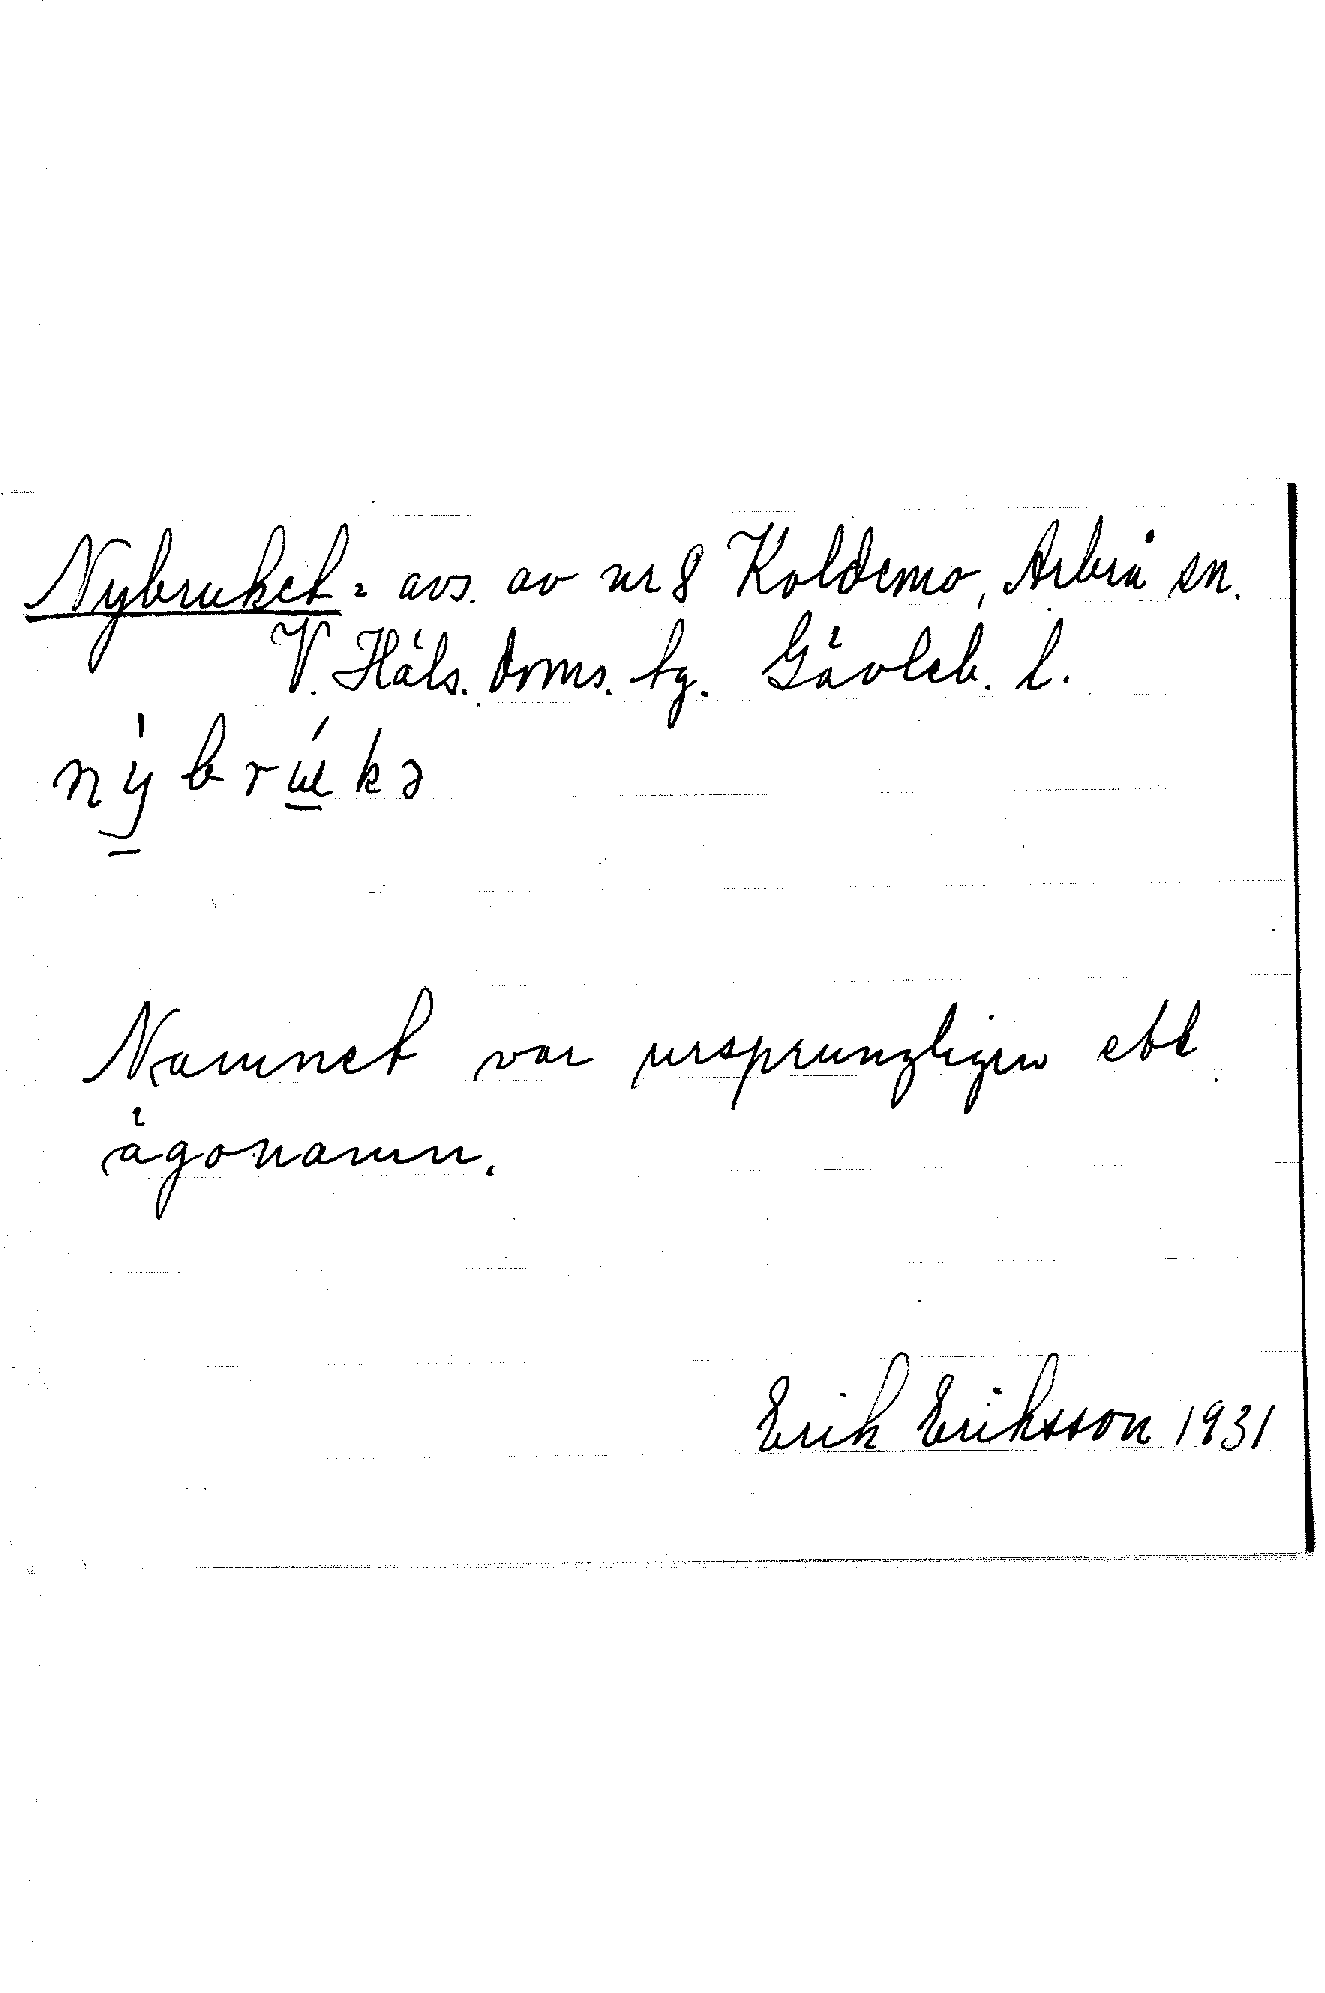 Nybruket = avs. av nr 8 Koldemo, Arbrå sn.
V. Häls. doms. tg. Gävleb. l.
nýbrúkə
Namnet var ursprungligen ett
ägonamn.
Erik Eriksson 1931